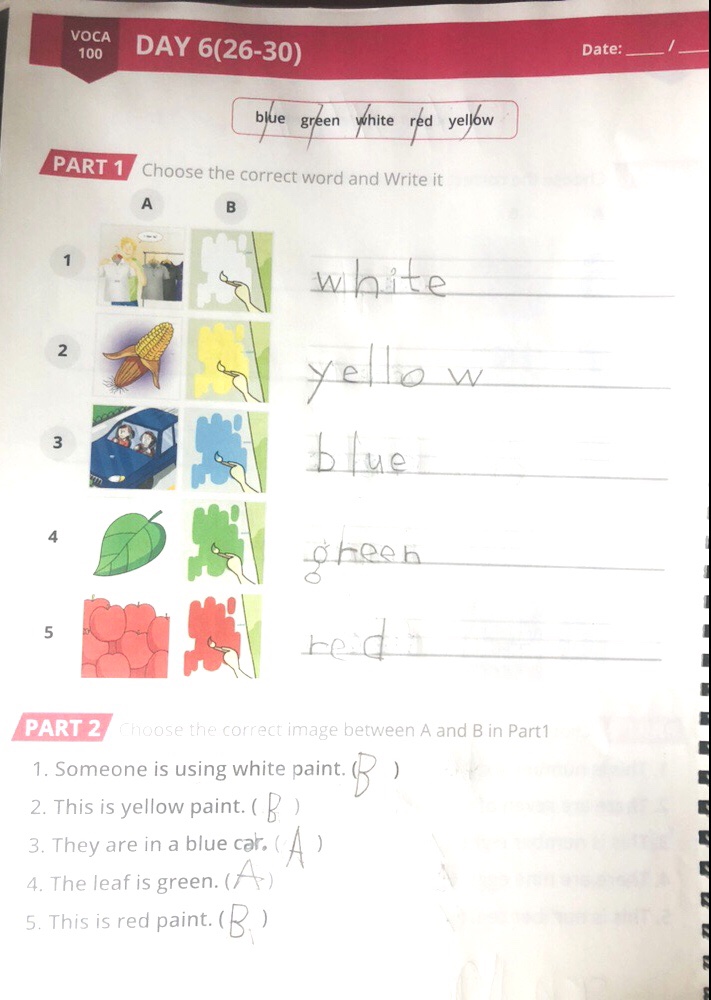 VOCA
100
DAY 6(26-30)
Date: ____ / ___
blue green white red yellow
PART 1 Choose the correct word and Write it
A B
1 white
2 yellow
3 blue
4 green
5 red
PART 2 Choose the correct image between A and B in Part1
1. Someone is using white paint. (B)
2. This is yellow paint. (B)
3. They are in a blue car. (A)
4. The leaf is green. (A)
5. This is red paint. (B)